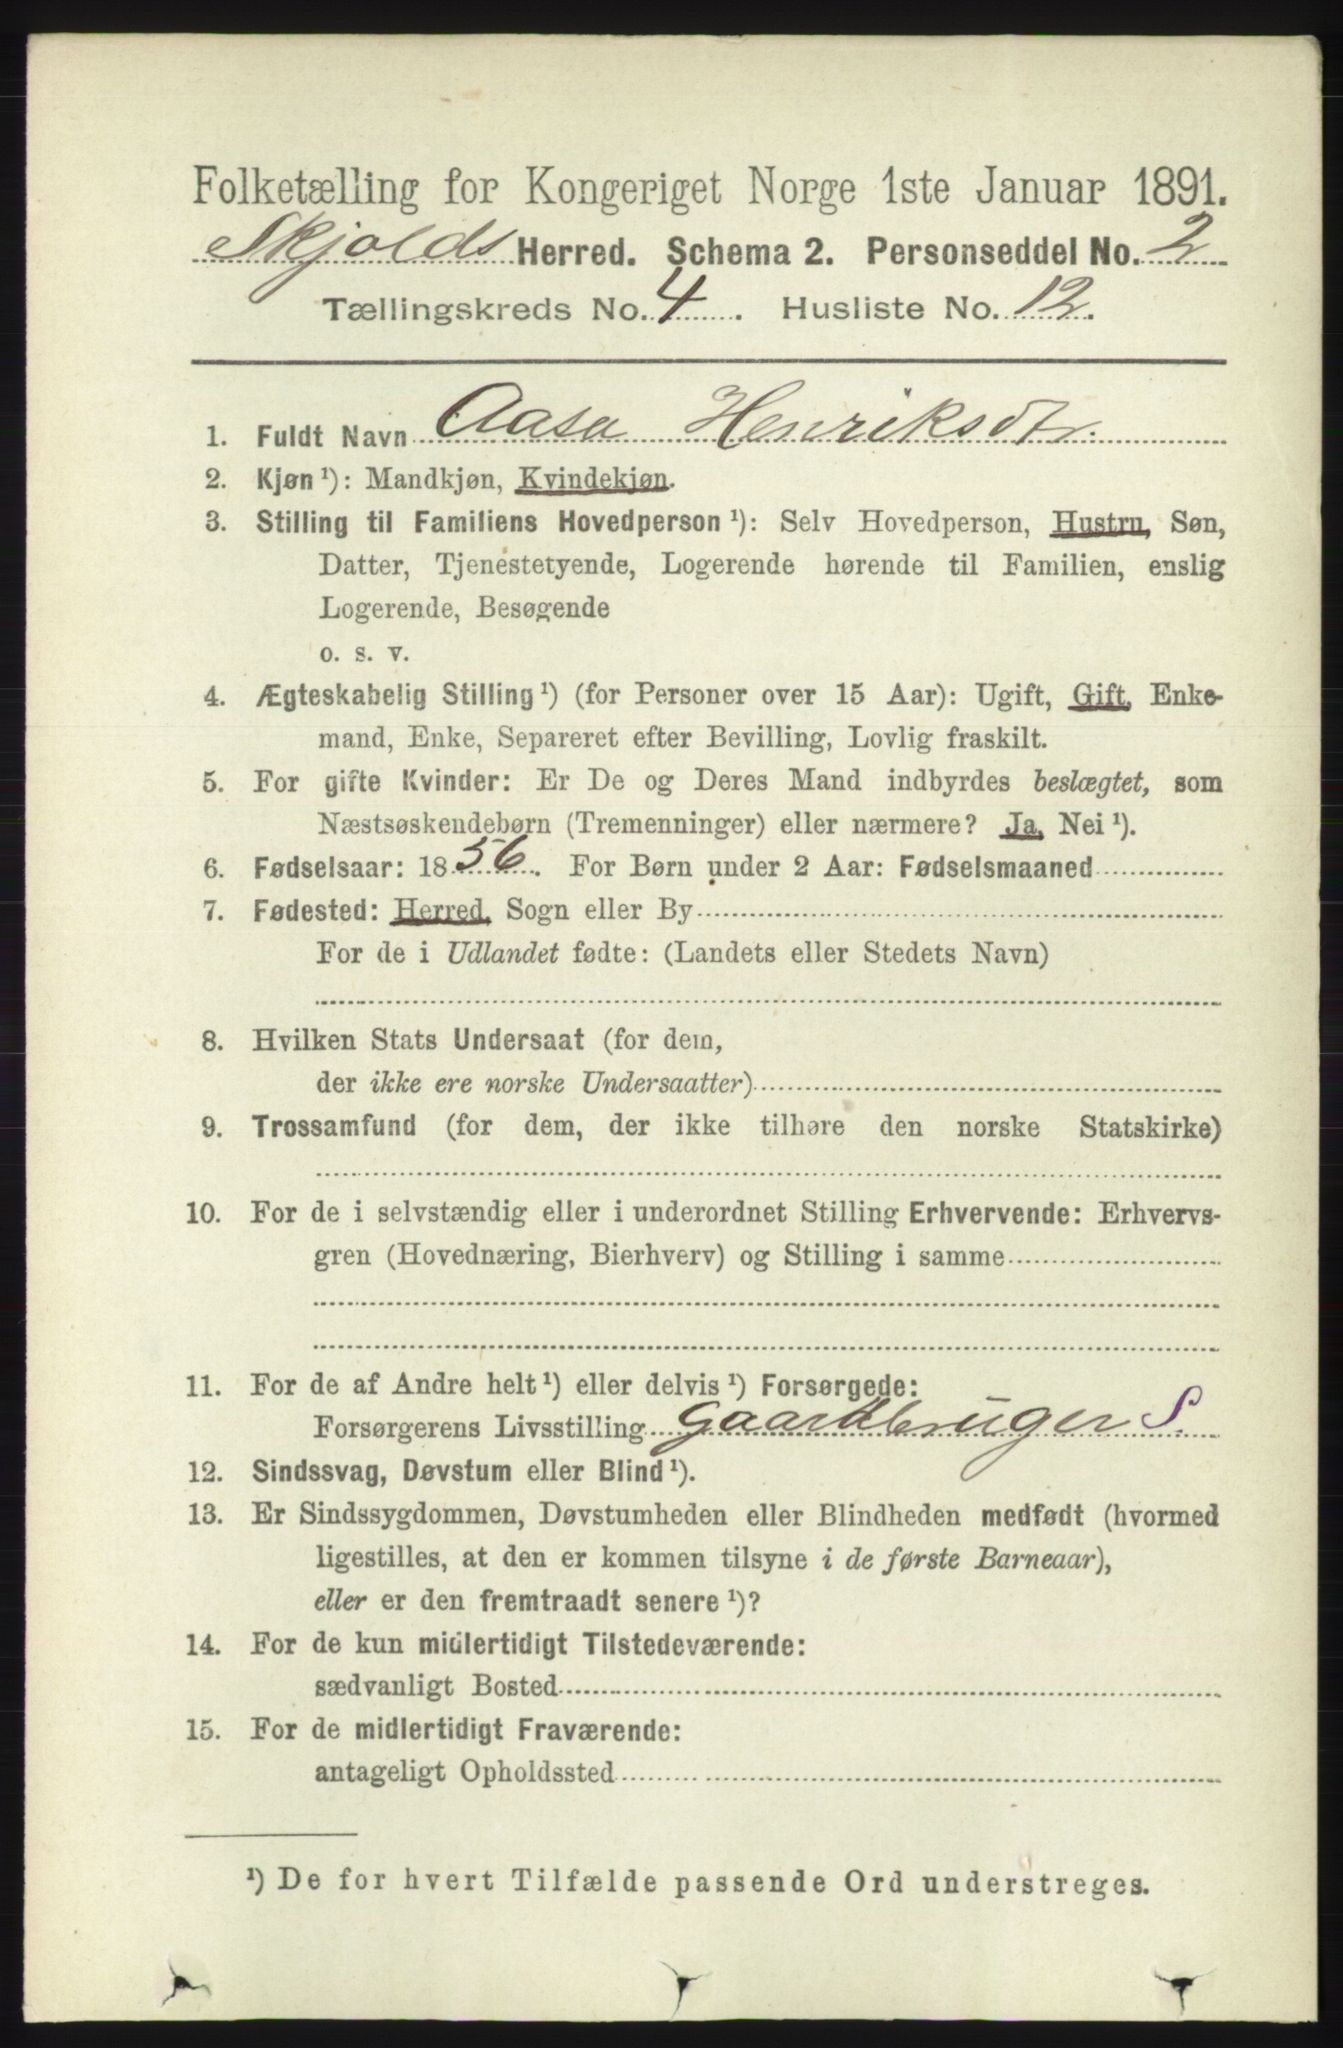 Folketælling for Kongeriget Norge 1ste Januar 1891.
Skjolds Herred. Schema 2. Personseddel No. 2
Tællingskreds No. 4. Husliste No. 12.
1. Fuldt Navn Aasa Henriksdtr.
2. Kjøn ¹): Mandkjøn, Kvindekjøn.
3. Stilling til Familiens Hovedperson ¹): Selv Hovedperson, Hustru, Søn,
Datter, Tjenestetyende, Logerende hørende til Familien, enslig
Logerende, Besøgende
o. s. v.
4. Ægteskabelig Stilling ¹) (for Personer over 15 Aar): Ugift, Gift, Enke-
mand, Enke, Separeret efter Bevilling, Lovlig fraskilt.
5. For gifte Kvinder: Er De og Deres Mand indbyrdes beslægtet, som
Næstsøskendebørn (Tremenninger) eller nærmere? Ja, Nei ¹).
6. Fødselsaar: 1856. For Børn under 2 Aar: Fødselsmaaned
7. Fødested: Herred, Sogn eller By
For de i Udlandet fødte: (Landets eller Stedets Navn)
8. Hvilken Stats Undersaat (for dem,
der ikke ere norske Undersaatter)
9. Trossamfund (for dem, der ikke tilhøre den norske Statskirke)
10. For de i selvstændig eller i underordnet Stilling Erhvervende: Erhvervs-
gren (Hovednæring, Bierhverv) og Stilling i samme
11. For de af Andre helt ¹) eller delvis ¹) Forsørgede:
Forsørgerens Livsstilling Gaardbruger S.
12. Sindssvag, Døvstum eller Blind ¹).
13. Er Sindssygdommen, Døvstumheden eller Blindheden medfødt (hvormed
ligestilles, at den er kommen tilsyne i de første Barneaar),
eller er den fremtraadt senere ¹)?
14. For de kun midlertidigt Tilstedeværende:
sædvanligt Bosted
15. For de midlertidigt Fraværende:
antageligt Opholdssted
¹) De for hvert Tilfælde passende Ord understreges.